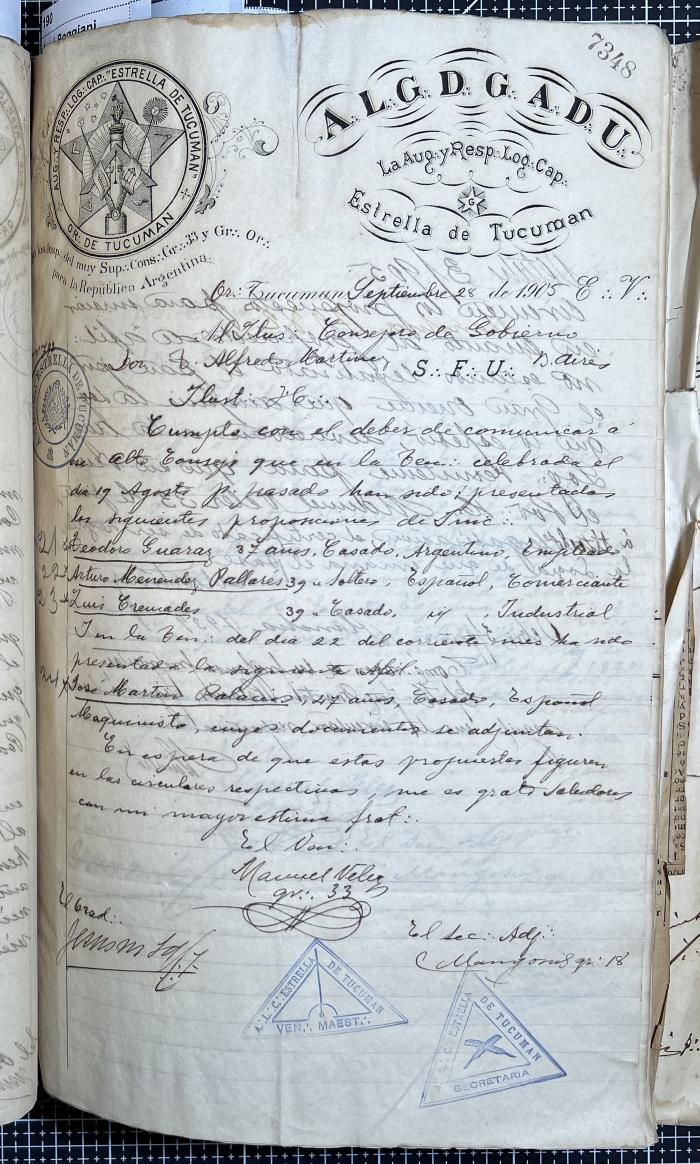 190
Boggiani
7348
AUG.·. Y RESP.·. LOG.·. CAP.·. "ESTRELLA DE TUCUMAN"
OR.·. DE TUCUMAN
del muy Sup.·. Cons.·. Gr.·. 33 y Gr.·. Or.·.
para la República Argentina.
A.·. L.·. G.·. D.·. G.·. A.·. D.·. U.·.
La Aug.·. y Resp.·. Log.·. Cap.·.
G
Estrella de Tucuman
Or.·. Tucuman Septiembre 28 de 1905 E.·. V.·.
Al Ilus.·. Consejero de Gobierno
Don Alfredo Martinez S.·. F.·. U.·. B. Aires
ESTRELLA DE TUCUMAN
Ilust.·. H.·.
Cumplo con el deber de comunicar á
ese alto Consejo que en la Ten.·. celebrada el
dia 19 Agosto p. pasado han sido presentadas
las siguientes proposiciones de Inic.·.
21 Teodoro Guaraz 37 años, Casado, Argentino, Empleado
22 Arturo Menendez Pallares 39 " Soltero, Español, Comerciante
23 Luis Cremades 39 " Casado, id, Industrial
I en la Ten.·. del dia 22 del corriente mes ha sido
presentada la siguiente Afil.·.
24 José Martin Palacios, 47 años, Casado, Español
Maquinista, cuyos documentos se adjuntan.
En espera de que estas propuestas figuren
en las circulares respectivas, me es grato saludaros
con mi mayor estima frat.·.
El Ven.·.
Manuel Velez
gr.·. 33
El Orad.·.
El Sec.·. Adj.·.
gr.·. 18
A.·. L.·. C.·. ESTRELLA DE TUCUMAN
VEN.·. MAEST.·.
ESTRELLA DE TUCUMAN
SECRETARIA